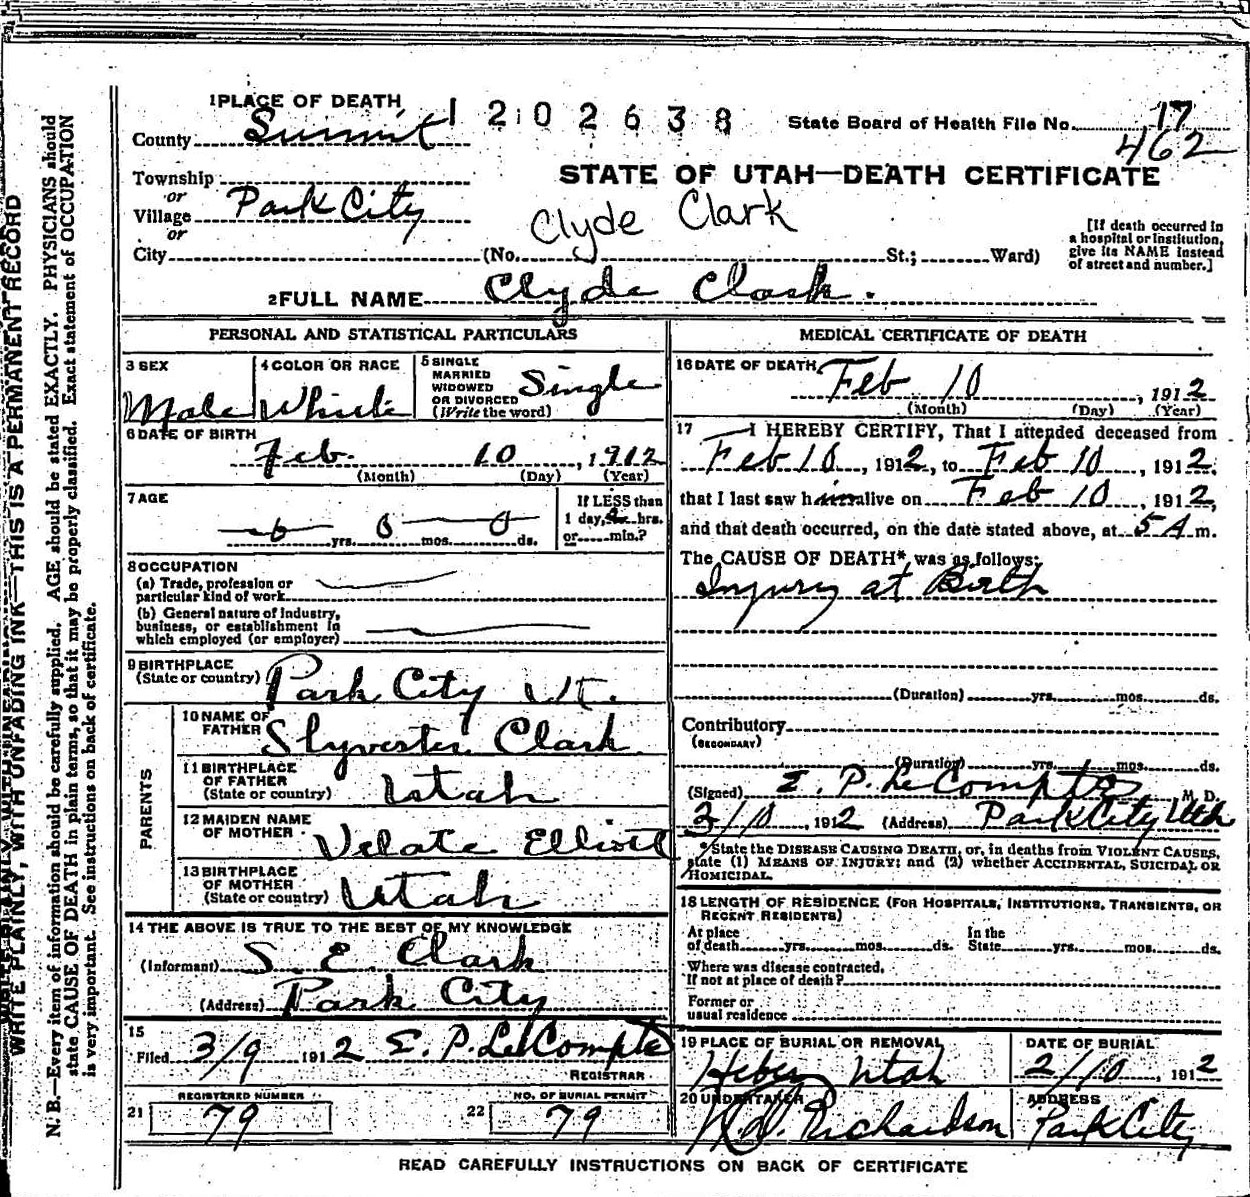 1 PLACE OF DEATH
1202638
State Board of Health File No. 17
462
County Summit
STATE OF UTAH—DEATH CERTIFICATE
Township
or
Village Park City
or
City (No. St.; Ward)
Clyde Clark
[If death occurred in
a hospital or institution,
give its NAME instead
of street and number.]
2 FULL NAME Clyde Clark.
PERSONAL AND STATISTICAL PARTICULARS
3 SEX
Male
4 COLOR OR RACE
White
5 SINGLE
MARRIED
WIDOWED
OR DIVORCED
(Write the word)
Single
6 DATE OF BIRTH
Feb. 10, 1912
(Month) (Day) (Year)
7 AGE
0 yrs. 0 mos. 0 ds.
If LESS than
1 day, hrs.
or min.?
8 OCCUPATION
(a) Trade, profession or
particular kind of work
(b) General nature of industry,
business, or establishment in
which employed (or employer)
9 BIRTHPLACE
(State or country)
Park City Ut.
PARENTS
10 NAME OF
FATHER
Slyvester Clark
11 BIRTHPLACE
OF FATHER
(State or country)
Utah
12 MAIDEN NAME
OF MOTHER
Velate Elliott
13 BIRTHPLACE
OF MOTHER
(State or country)
Utah
14 THE ABOVE IS TRUE TO THE BEST OF MY KNOWLEDGE
(Informant) S. E. Clark
(Address) Park City
15
Filed 3/9 1912 E. P. LeCompte
REGISTRAR
21
REGISTERED NUMBER
79
22
NO. OF BURIAL PERMIT
79
MEDICAL CERTIFICATE OF DEATH
16 DATE OF DEATH
Feb 10, 1912
(Month) (Day) (Year)
17 I HEREBY CERTIFY, That I attended deceased from
Feb 10, 1912, to Feb 10, 1912,
that I last saw him alive on Feb 10, 1912,
and that death occurred, on the date stated above, at 5 A m.
The CAUSE OF DEATH* was as follows:
Injury at Birth
(Duration) yrs. mos. ds.
Contributory
(SECONDARY)
(Duration) yrs. mos. ds.
(Signed) E. P. LeCompte M. D.
3/10, 1912 (Address) Park City Utah
*State the DISEASE CAUSING DEATH, or, in deaths from VIOLENT CAUSES,
state (1) MEANS OF INJURY; and (2) whether ACCIDENTAL, SUICIDAL OR
HOMICIDAL.
18 LENGTH OF RESIDENCE (FOR HOSPITALS, INSTITUTIONS, TRANSIENTS, OR
RECENT RESIDENTS)
At place
of death yrs. mos. ds.
In the
State yrs. mos. ds.
Where was disease contracted,
if not at place of death?
Former or
usual residence
19 PLACE OF BURIAL OR REMOVAL
Heber Utah
DATE OF BURIAL
2/10, 1912
20 UNDERTAKER
Richardson
ADDRESS
Park City
READ CAREFULLY INSTRUCTIONS ON BACK OF CERTIFICATE
WRITE PLAINLY, WITH UNFADING INK—THIS IS A PERMANENT RECORD
N. B.—Every item of information should be carefully supplied. AGE should be stated EXACTLY. PHYSICIANS should
state CAUSE OF DEATH in plain terms, so that it may be properly classified. Exact statement of OCCUPATION
is very important. See instructions on back of certificate.